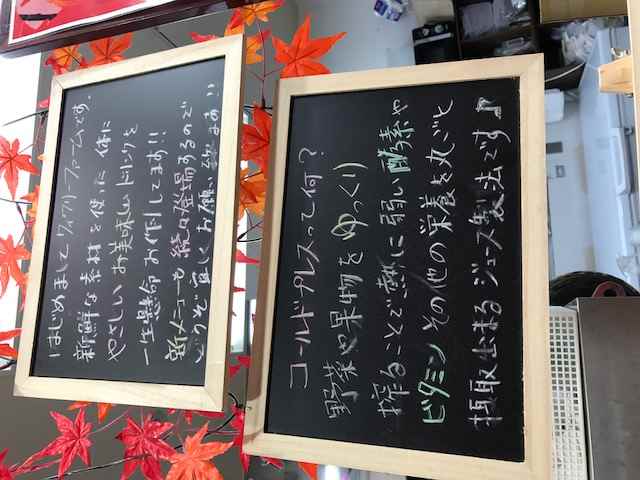 はじめまして ワイグリーファームです。
新鮮な素材を使った 体に
やさしい お美味しいドリンクを
一生懸命 お作りしてます!!
新メニューも 続々登場するので
どうぞ宜しく お願い致します!!
コールドプレスって何?
野菜や果物を ゆっくり
搾ることで熱に弱い酵素や
ビタミン その他の栄養を丸ごと
摂取出来る ジュース製法です♪